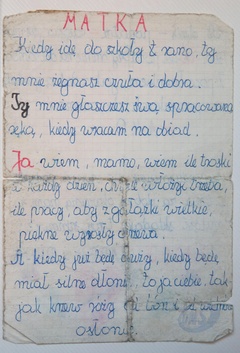 MATKA
Kiedy idę do szkoły z rano, ty
mnie żegnasz czuła i dobra.
Ty mnie głaszczesz swą spracowaną
ręką, kiedy wracam na obiad.
Ja wiem, mamo, wiem ile troski
w każdy dzień, włożyć trzeba,
ile pracy, aby z gałązki wielkie,
piękne wyrosły drzewa.
A kiedy już będę duży, kiedy będę
miał silne dłonie, to ja ciebie tak
jak krzew róży
osłonię.